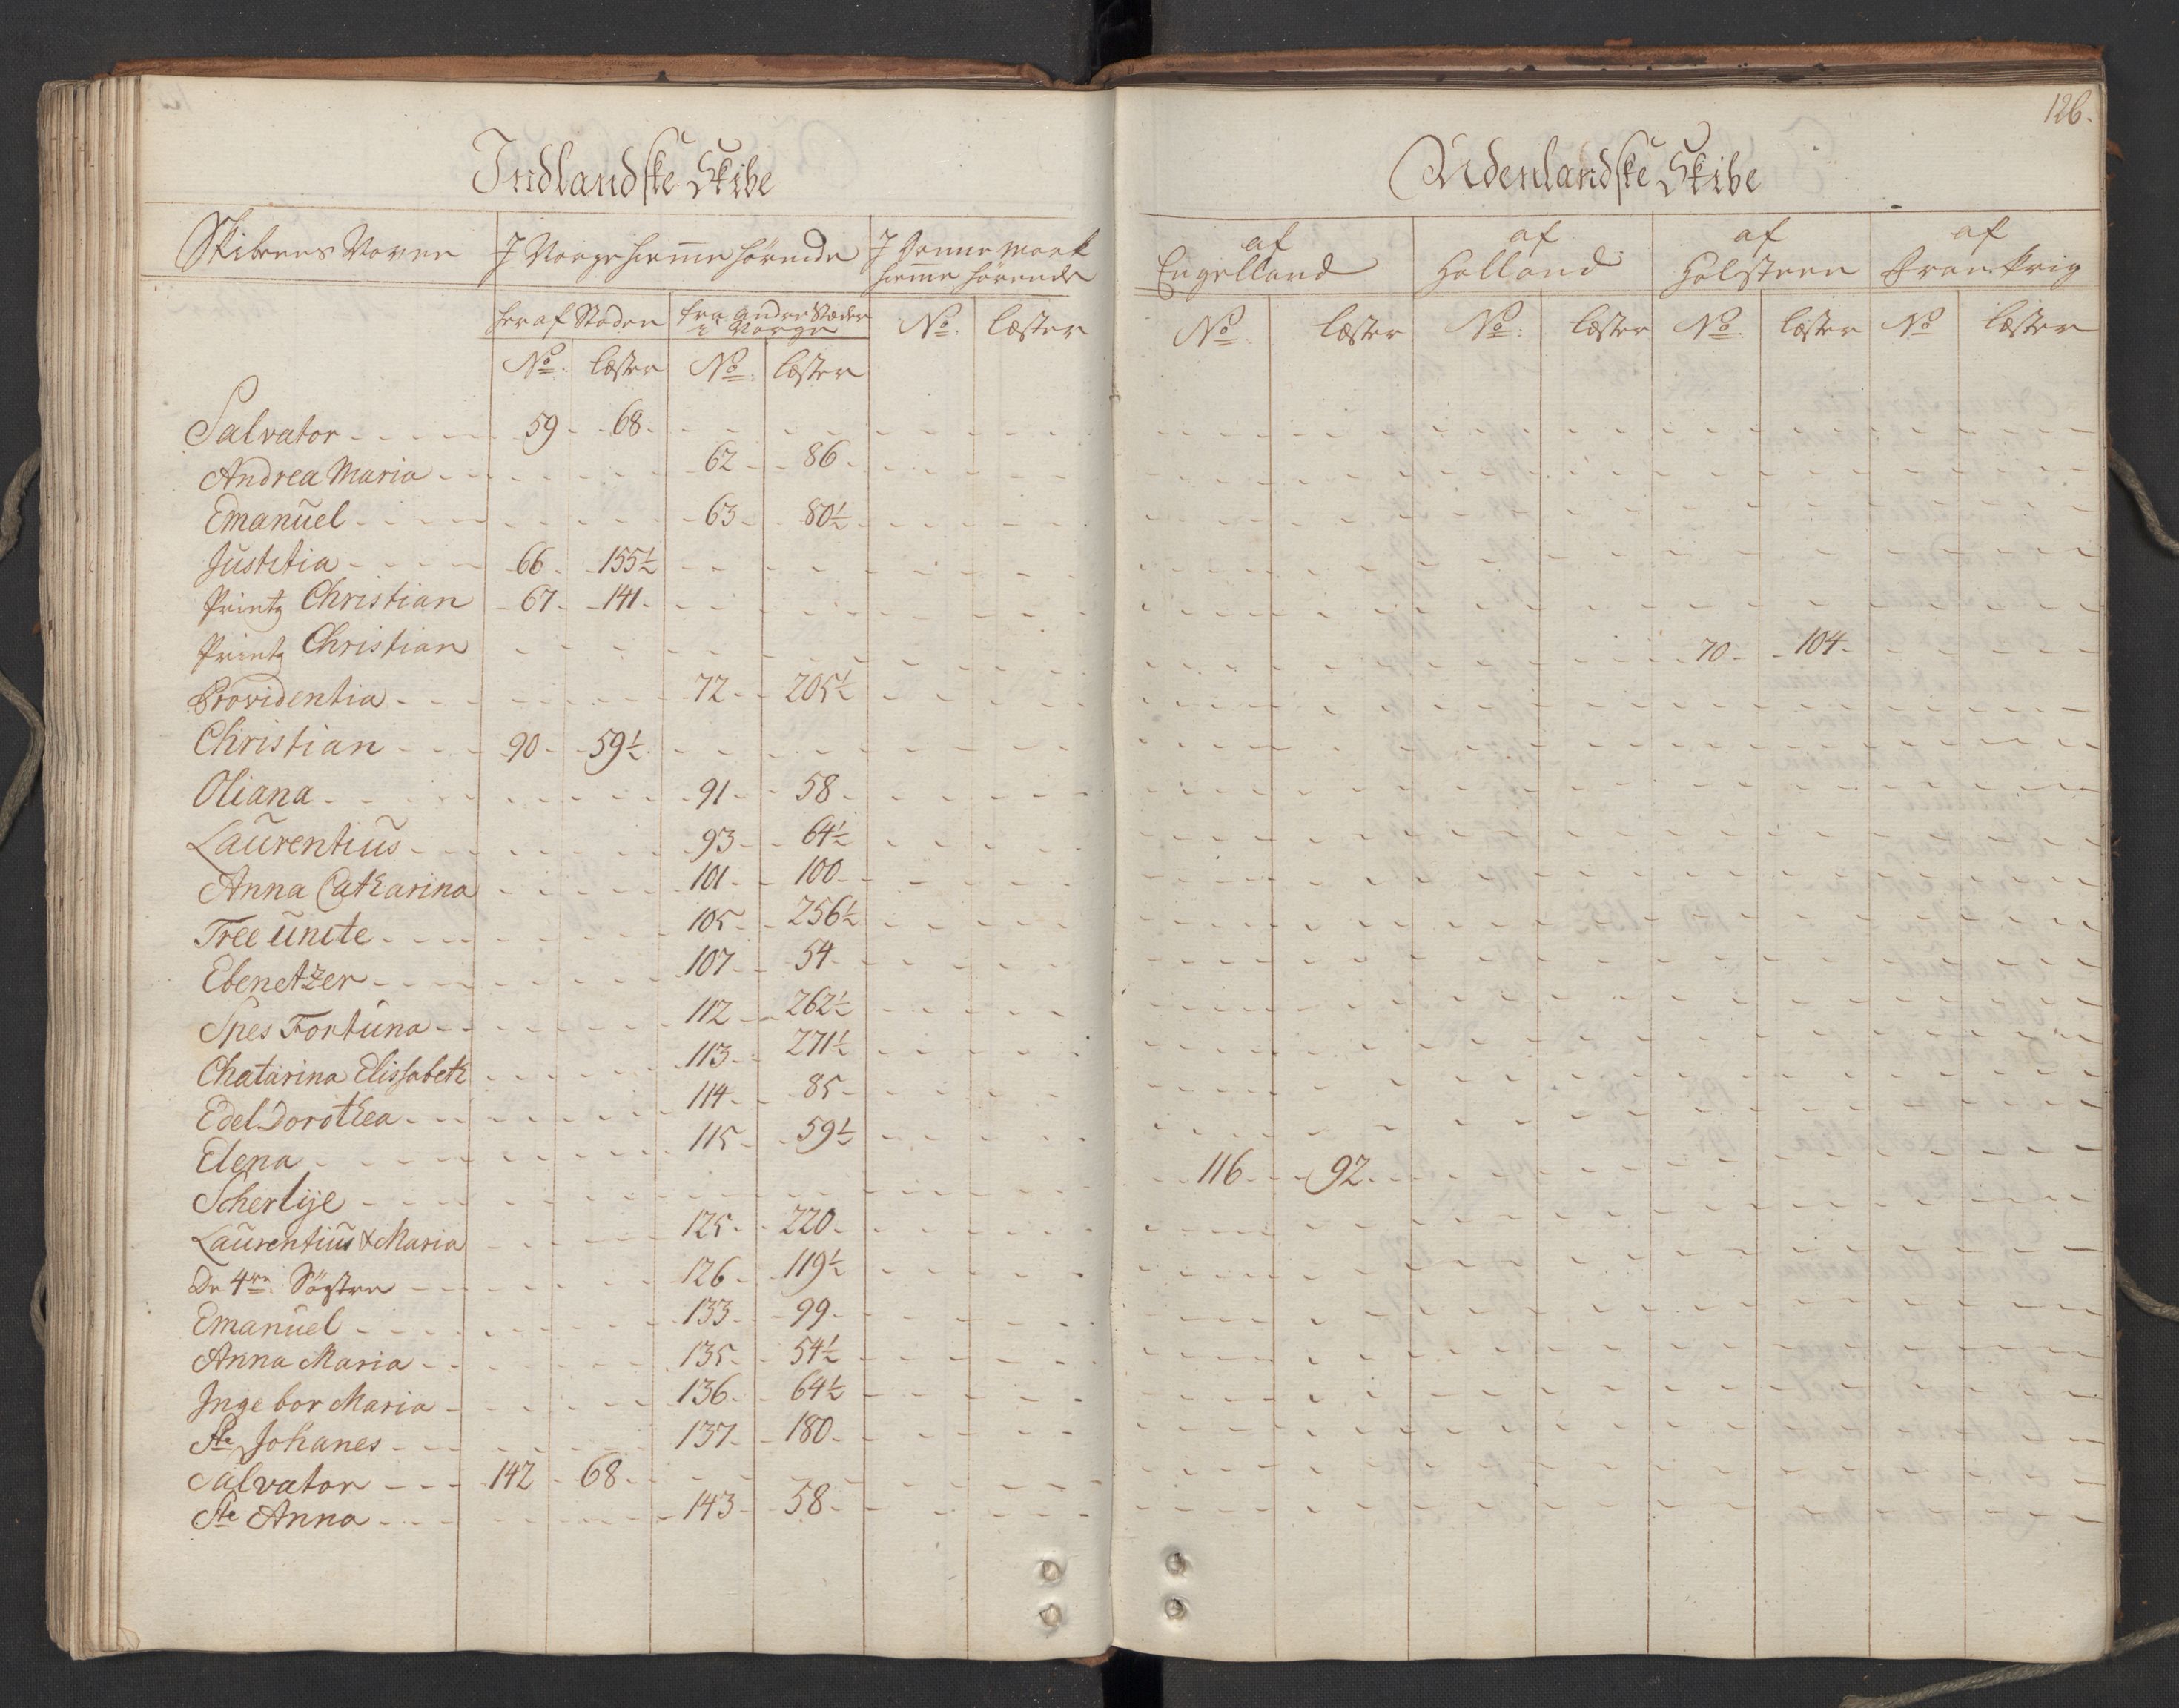 126.
Indlandske Skibe
Skibenes Navne
I Norge hiemmehörende
I Danne mark
hiemehörende
her af Staden
fra andre Stæder
i Norge
No. læster
No: læster
No. læster
Salvator 59 68
Andrea Maria 62 86
Emanuel 63 80½
Justitia 66 155½
Printz Christian 67 141
Printz Christian
Providentia 72 205½
Christian 90 59½
Oliana 91 58
Laurentius 93 64½
Anna Catharina 101 100
Tree Unite 105 256½
Ebenetzer 107 54
Spes Fortuna 112 262½
Chatarina Elissabeth 113 271½
Edel Dorothea 114 85
Elena 115 59½
Scherlije
Laurentius & Maria 125 220
De 4re Söstre 126 119½
Emanuel 133 99
Anna Maria 135 54½
Inge bor Maria 136 64½
Ste Johanes 137 180
Salvator 142 68
Ste Anna 143 58
Udenlandske Skibe
af
Engelland
af
Holland
af
Holsteen
af
Frankrig
No. læster
No: læster
No. læster
No læster
70 104
116 92